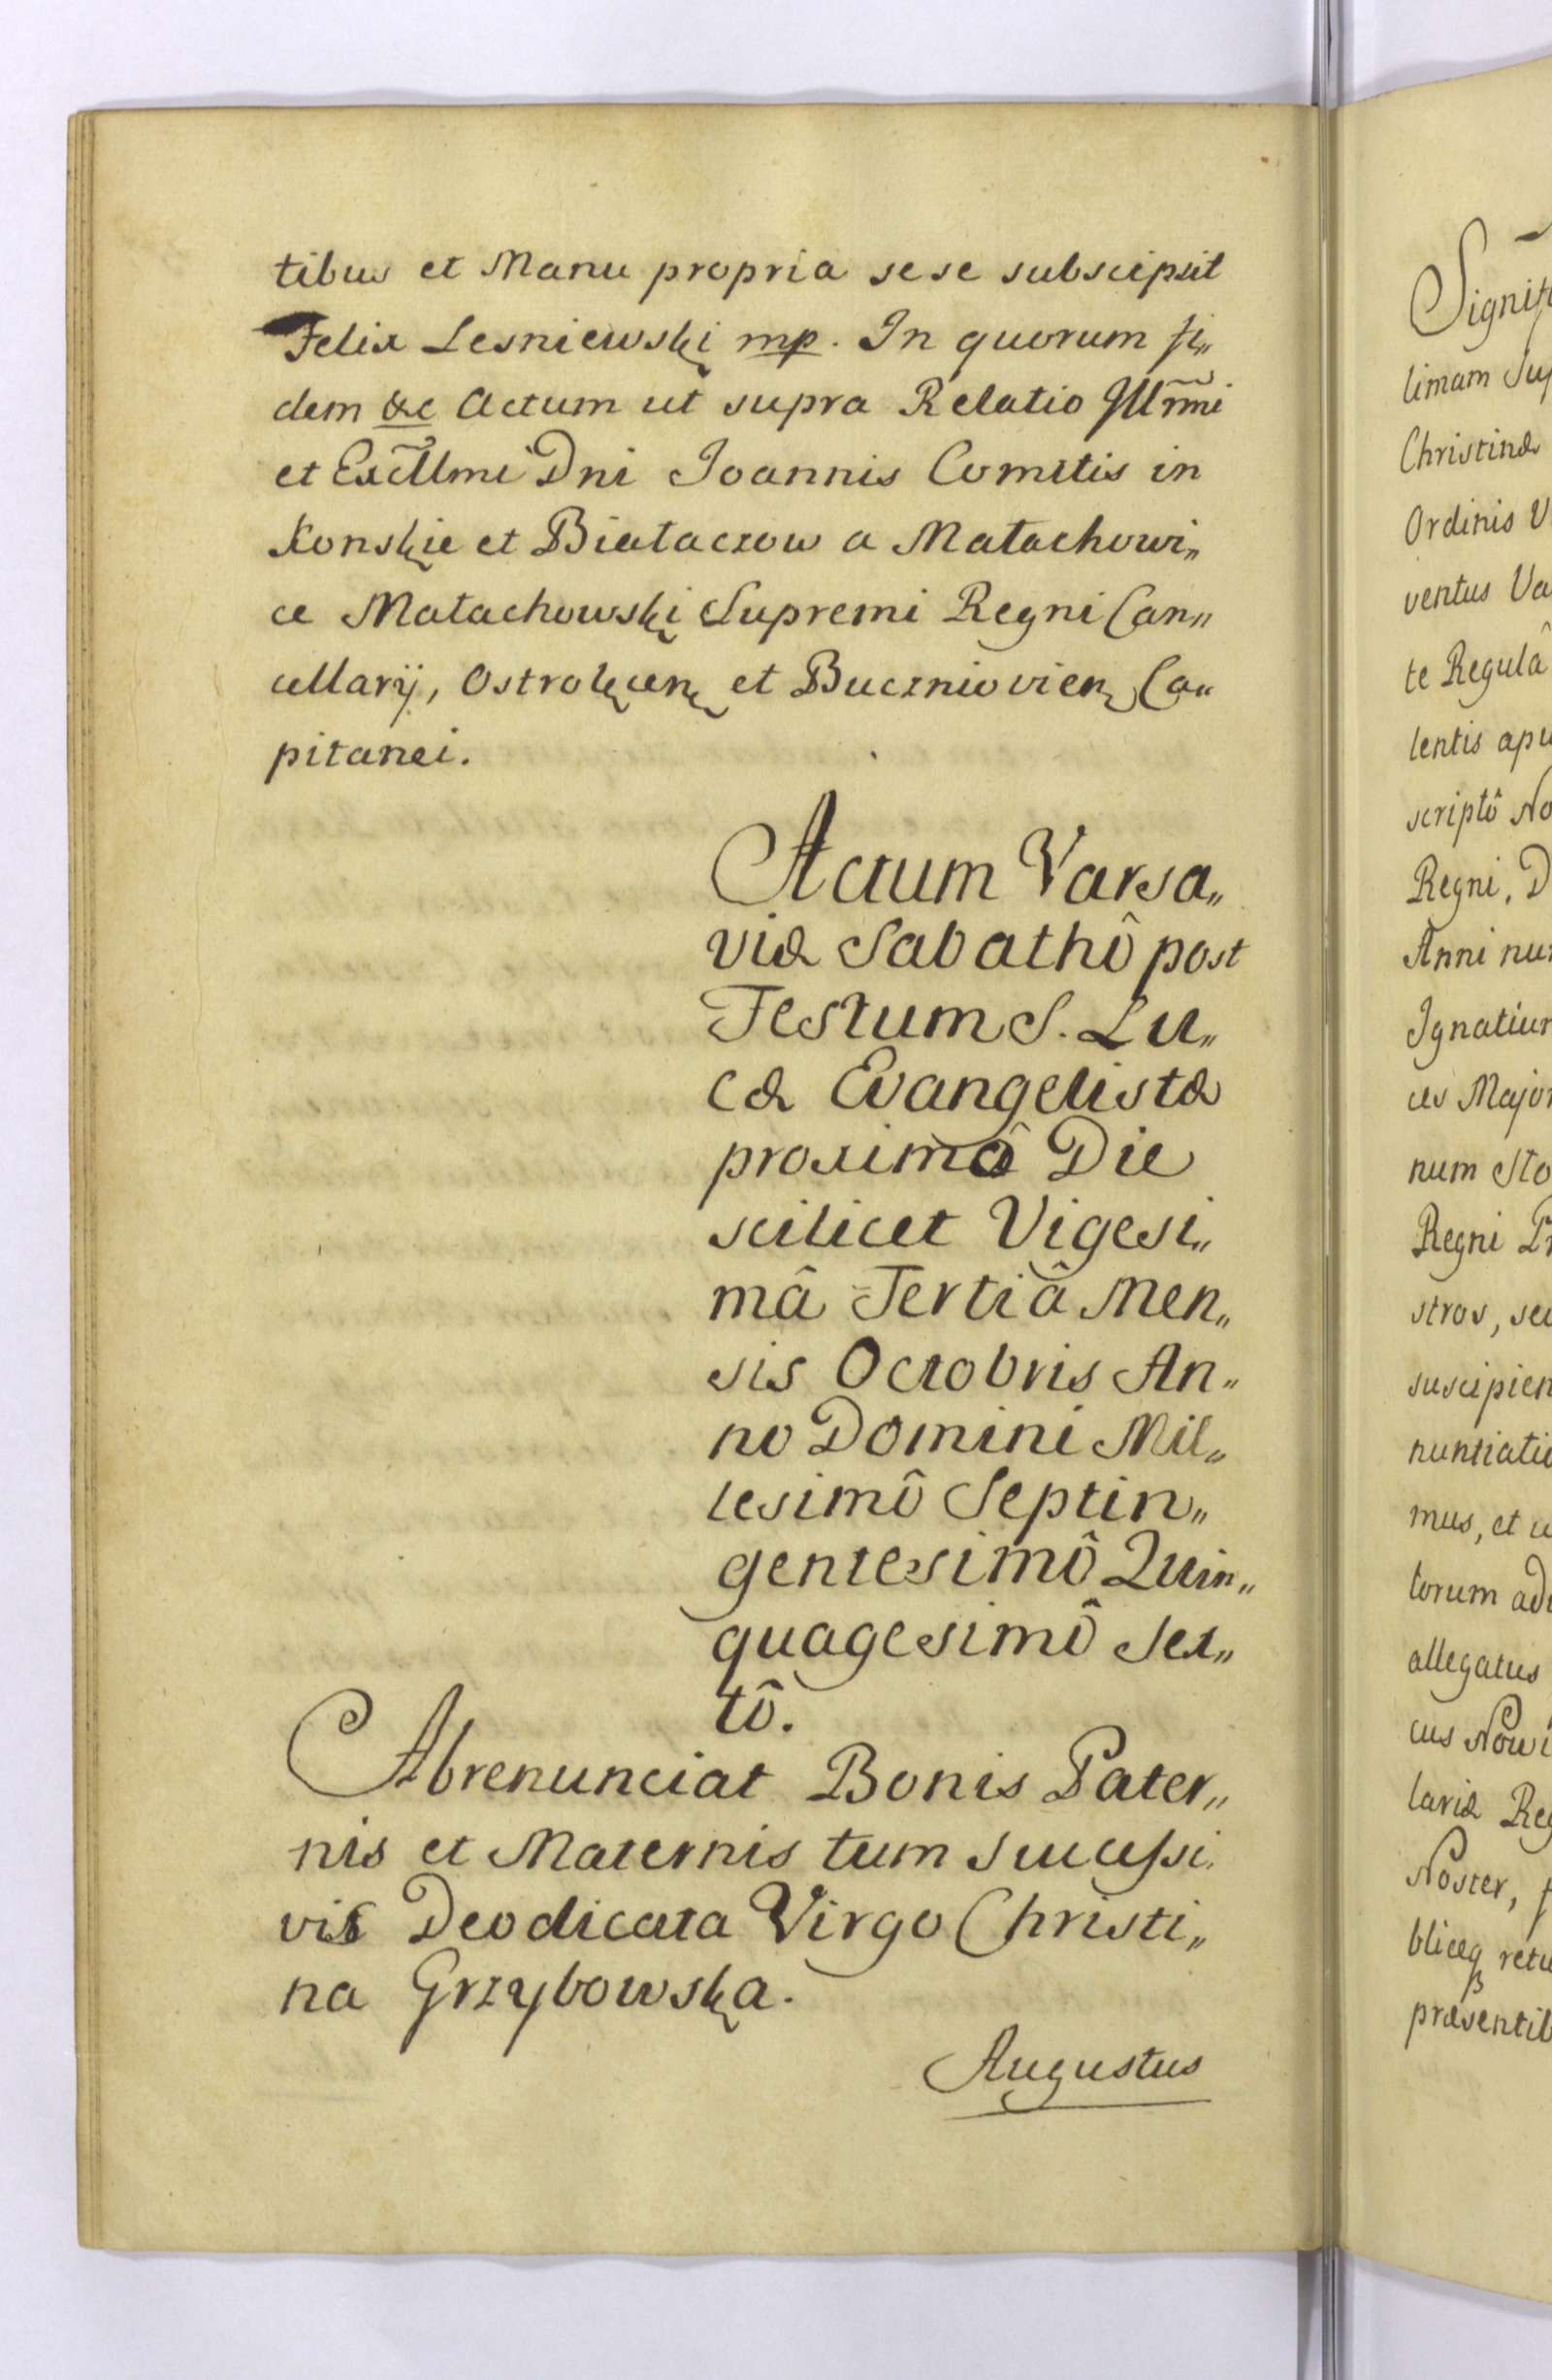 tibus et Manu propria sese subscripsit
Felix Lesniewski mp. In quorum fi„
dem &c Actum ut supra Relatio Jllrmi
et Excllmi Dni Joannis Comitis in
Konskie et Biataczow a Matachowi„
ce Matachowski Supremi Regni Can„
cellarij, Ostrolecen et Buczniovien Ca„
pitanei.
Actum Varsa„
viæ Sabathô post
Festum S. Lu„
cæ Evangelistæ
proximô Die
scilicet Vigesi„
mâ Tertiâ Men„
sis Octobris An„
no Domini Mil„
lesimô Septin„
gentesimô Quin„
quagesimô Sex„
tô.
Abrenunciat Bonis Pater„
nis et Maternis tum Successi„
vis Deodicata Virgo Christi„
na Grzybowska.
Augustus
limam
Christinæ
Ordinis
ventus
te Regulâ
lentis
scriptô
Regni,
Anni
num
Regni
stros,
mus, et
torum
allegatus
cus
lariæ
Noster,